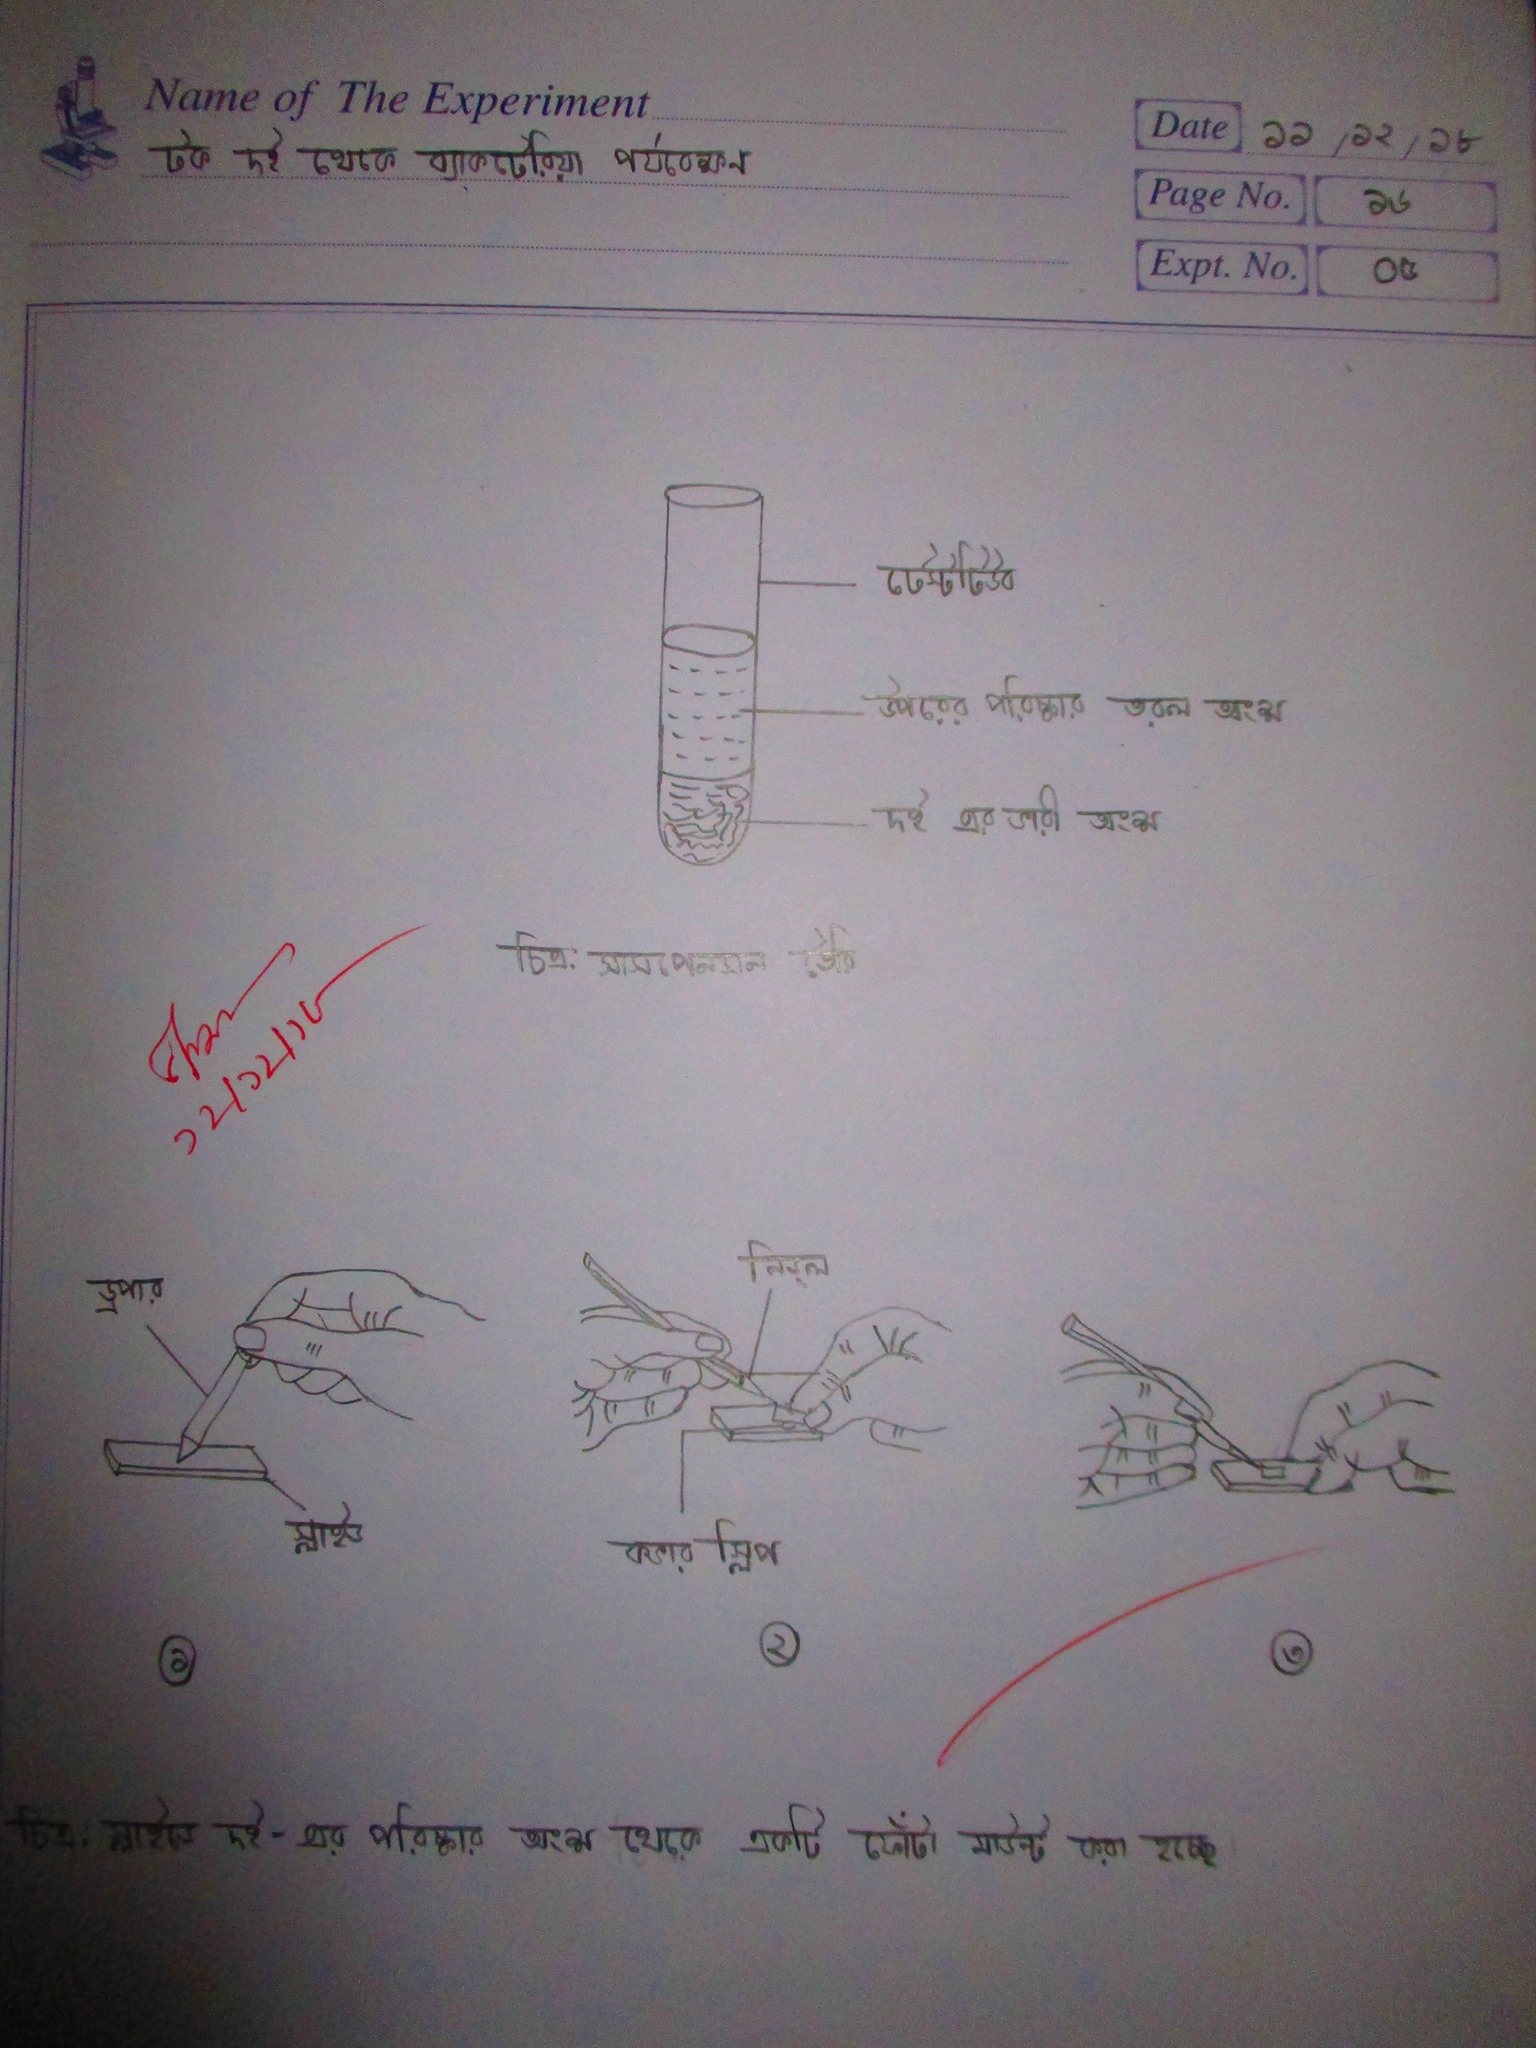 Name of The Experiment
টক দই থেকে ব্যাকটেরিয়া পর্যবেক্ষন
Date ১১/১২/১৮
Page No. ১৬
Expt. No. ০৫
টেস্টটিউব
উপরের পরিষ্কার তরল অংশ
দই এর ভারী অংশ
চিত্র: সাসপেনসান তৈরি
১২/১২/১৮
ড্রপার
নিডল
স্লাইড
কভার স্লিপ
১
২
৩
চিত্র: স্লাইডে দই-এর পরিষ্কার অংশ থেকে একটি ফোঁটা মাউন্ট করা হচ্ছে